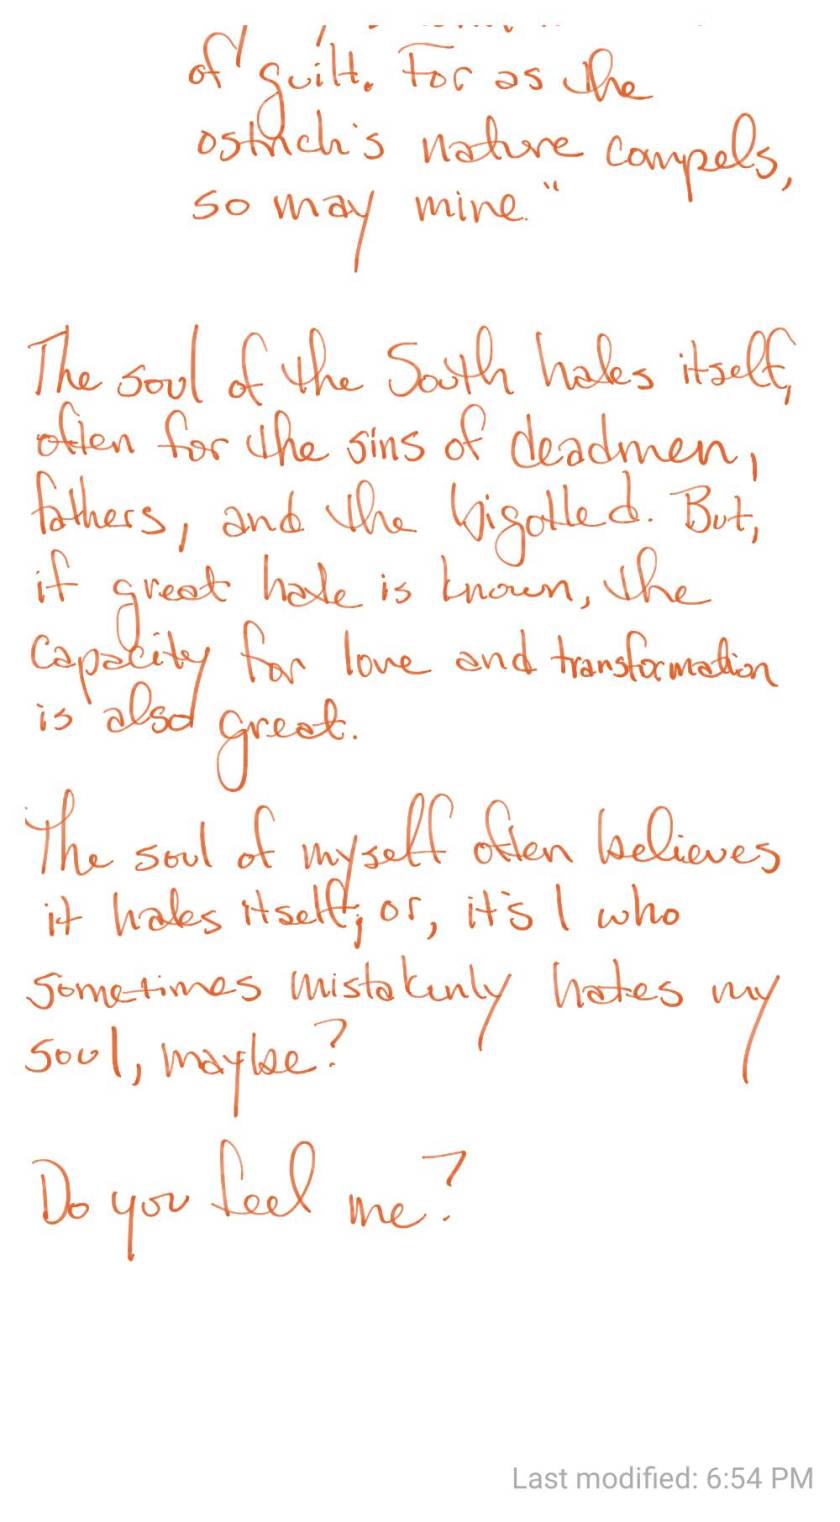 of guilt. For as the
ostrich's nature compels,
so may mine."
The soul of the South hates itself,
often for the sins of deadmen,
fathers, and the bigotted. But,
if great hate is known, the
capacity for love and transformation
is also great.
The soul of myself often believes
it hates itself; or, it's I who
sometimes mistakenly hates my
soul, maybe?
Do you feel me?
Last modified: 6:54 PM